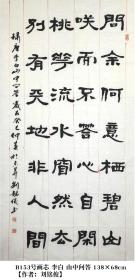 問余何意栖碧山
咲而不答心自閑
桃花流水窅然去
別有天地非人間
D153号画芯 李白 山中问答 138×68cm
【作者：刘铭俊】